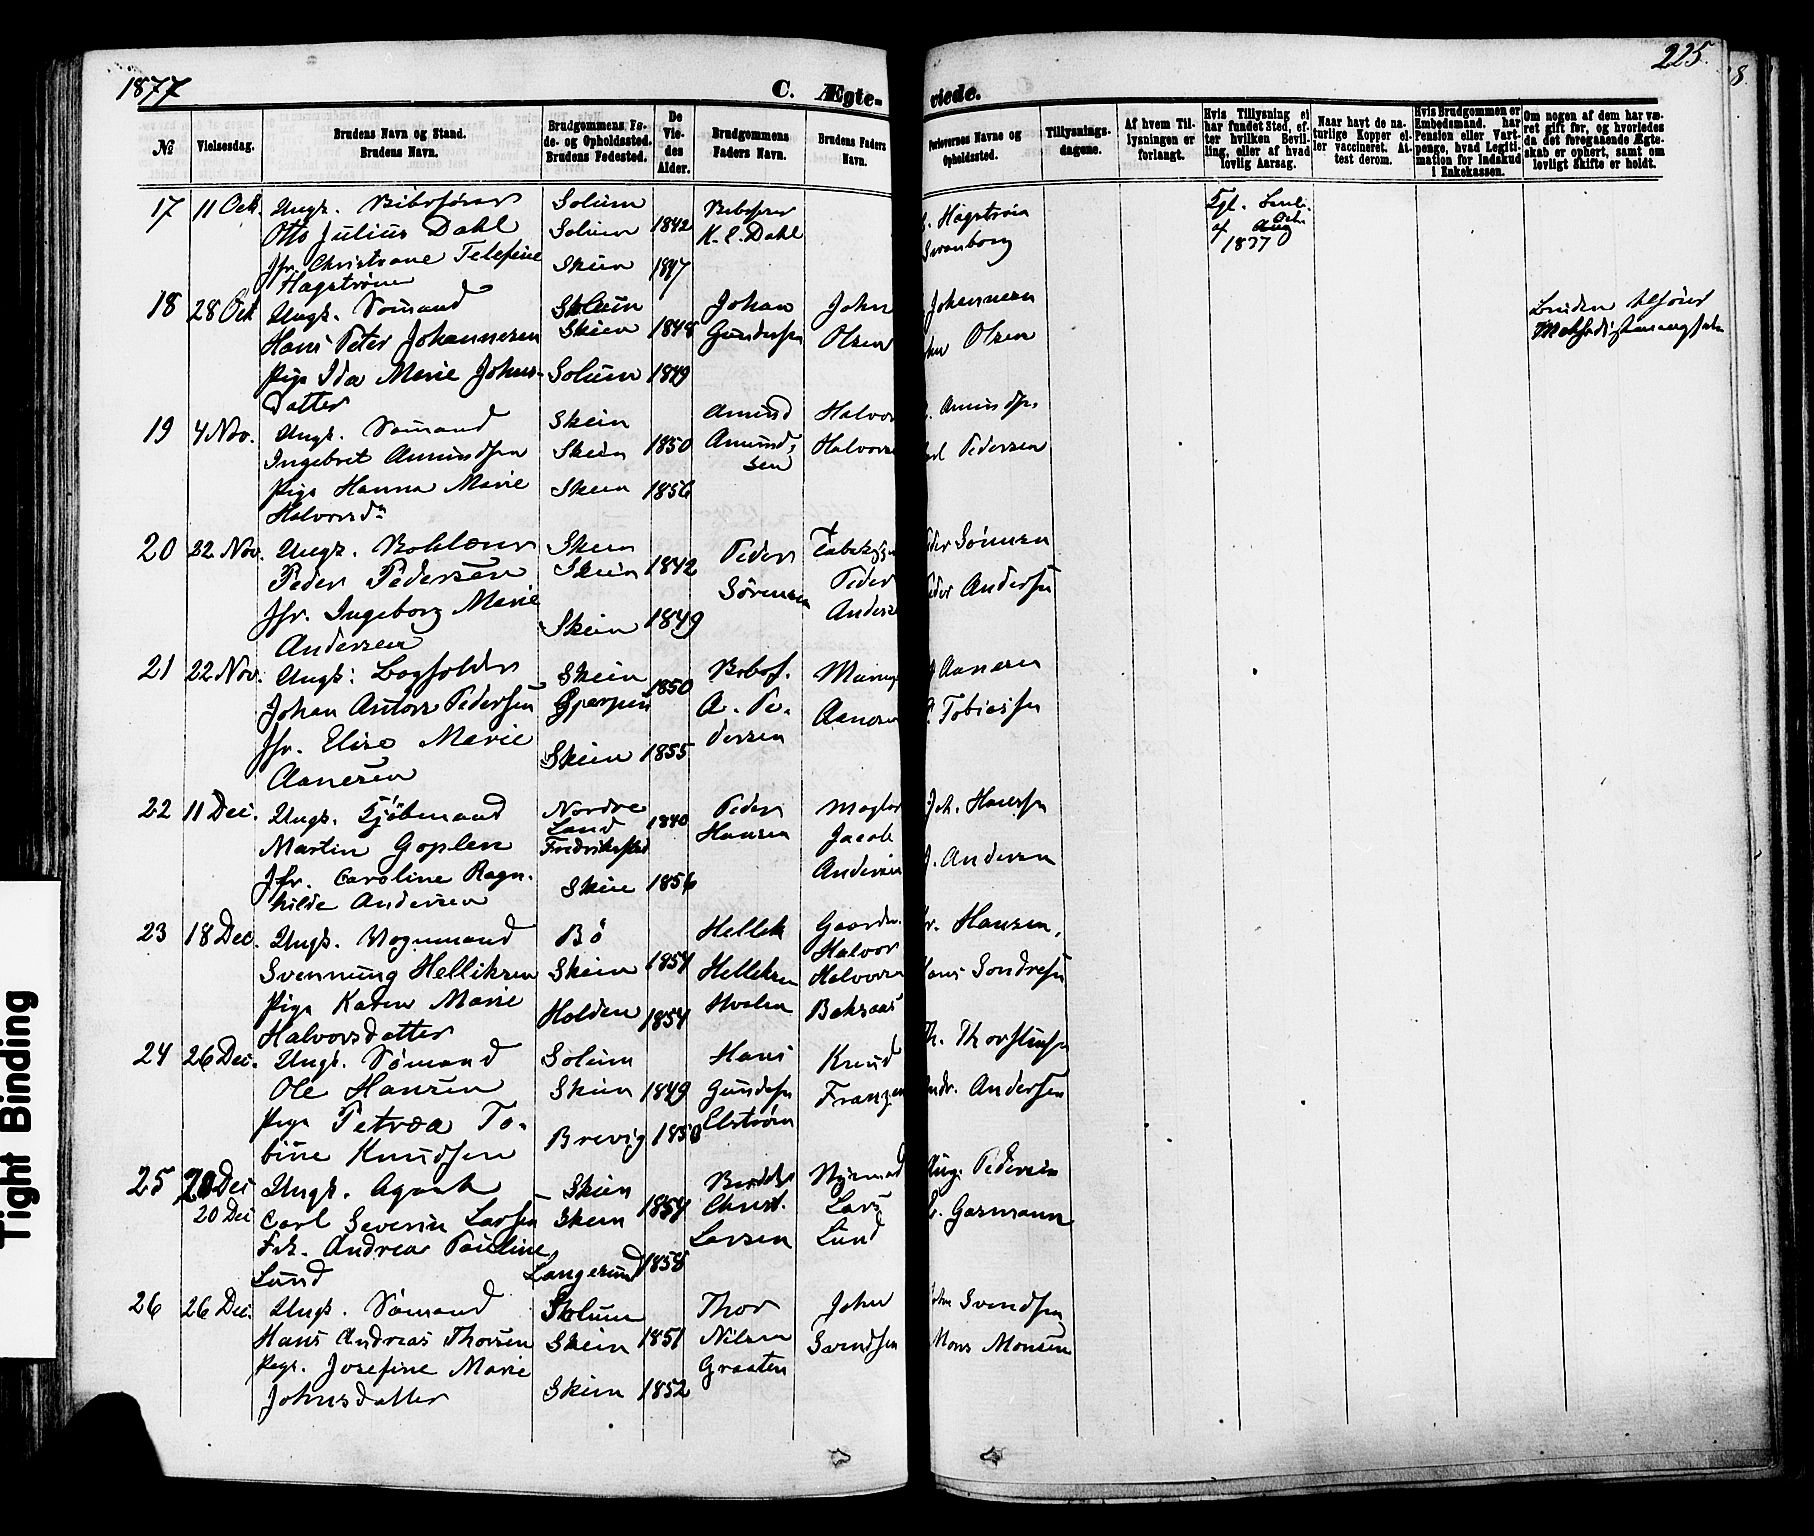 1877
C. Ægte-
viede.
225.
8.
№
Vielsesdag.
Brudens Navn og Stand.
Brudens Navn.
Brudgommens Fø-
de- og Opholdssted.
Brudens Fødested.
De
Vie-
des
Alder.
Brudgommens
Faders Navn.
Brudens Faders
Navn.
Forlovernes Navne og
Opholdssted.
Tillysnings-
dagene.
Af hvem Til-
lysningen er
forlangt.
Hvis Tillysning ei
har fundet Sted, ef-
ter hvilken Bevil-
ling, eller af hvad
lovlig Aarsag.
Naar havt de na-
turlige Kopper el-
ler vaccineret. At-
test derom.
Hvis Brudgommen er
Embedsmand, har
Pension eller Vart-
penge, hvad Legiti-
mation for Indskud
i Enkekassen.
Om nogen af dem har væ-
ret gift før, og hvorledes
da det foregaaende Ægte-
skab er ophørt, samt om
lovligt Skifte er holdt.
17 11 Oct. Ungk.
Otto Julius Dahl
Jfr. Christiane Telefine
Hagstrøm
Solum
Solum 1842
Skien 1847
K. E. Dahl
Hagstrøm
Svanborg
4
1877
18 28 Oct Ungk. Sømand
Hans Peter Johannesen
Pige Ida Marie Johns-
datter
Solum
Skien 1848
Solum 1849
Johan
Gundersen
John
Olsen
Johannesen
Olsen
19 4 Nov. Ungk. Sømand
Ingebret Amundsen
Pige Hanna Marie
Halvorsdr
Skien
Skien 1850
Skien 1856
Amund
Amund-
sen
Halvor
Halvorse
Amundsen
Pedersen
20 22 Nov. Ungk.
Peder Pedersen
Jfr. Ingeborg Marie
Andersen
Skien
Skien 1842
Skien 1849
Peder
Sørensen
Peder
Anderse
Peder Andersen
21 22 Nov. Ungk. Bogholder
Johan Anton Pedersen
Jfr. Elise Marie
Aanesen
Skien
Gjerpen 1850
Skien 1855
A. Pe-
dersen
Aanesen
Aanesen
Tobiassen
22 11 Dec. Ungk. Kjøbmand
Martin Goplen
Jfr. Caroline Ragn-
hilde Andersen
Nordre
Land
Fredrikstad 1840
Skien 1856
Peder
Hansen
Mægler
Jacob
Andersen
Joh. Hansen
J. Andersen
23 18 Dec. Ungk. Vognmand
Svennung Helliksen
Pige Karen Marie
Halvorsdatter
Bø
Skien 1854
Holden 1854
Hellek
Helleksen
Gaardbr.
Halvor
Halvorsen
Hansen,
Hans Sondresen
24 26 Dec. Ungk. Sømand
Ole Hansen
Pige Petrea To-
bine Knudsen
Solum
Skien 1849
Brevig 1850
Hans
Gundersen
Elstrøm
Knud
Franzen
Th. Thorstensen
Andr. Andersen
25 20 Dec
20 Dec
Ungk. Agent
Carl Severin Larsen
Frk. Andrea Pauline
Lund
Skien
Skien 1854
Langesund 1858
Christ.
Larsen
Lars
Lund
Aug. Pedersen
Garmann
26 26 Dec. Ungk. Sømand
Hans Andreas Thorsen
Pige. Josefine Marie
Johnsdatter
Solum
Skien 1851
Skien 1852
Thor
Nilsen
Graaten
John
Svendsen
John Svendsen
Mons Monsen
Tight Binding